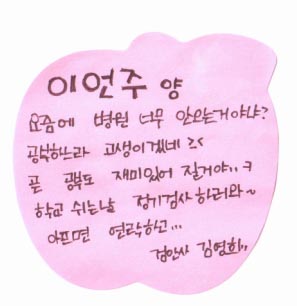 이언주 양
요즘에 병원 너무 안오는거야냐?
공부하느라 고생이겠네 ㅈㅈ
곧 공부도 재미있어 질거야..ㅋ
학교 쉬는날 정기검사 하러와~
아프면 연락하고...
검안사 김영희..